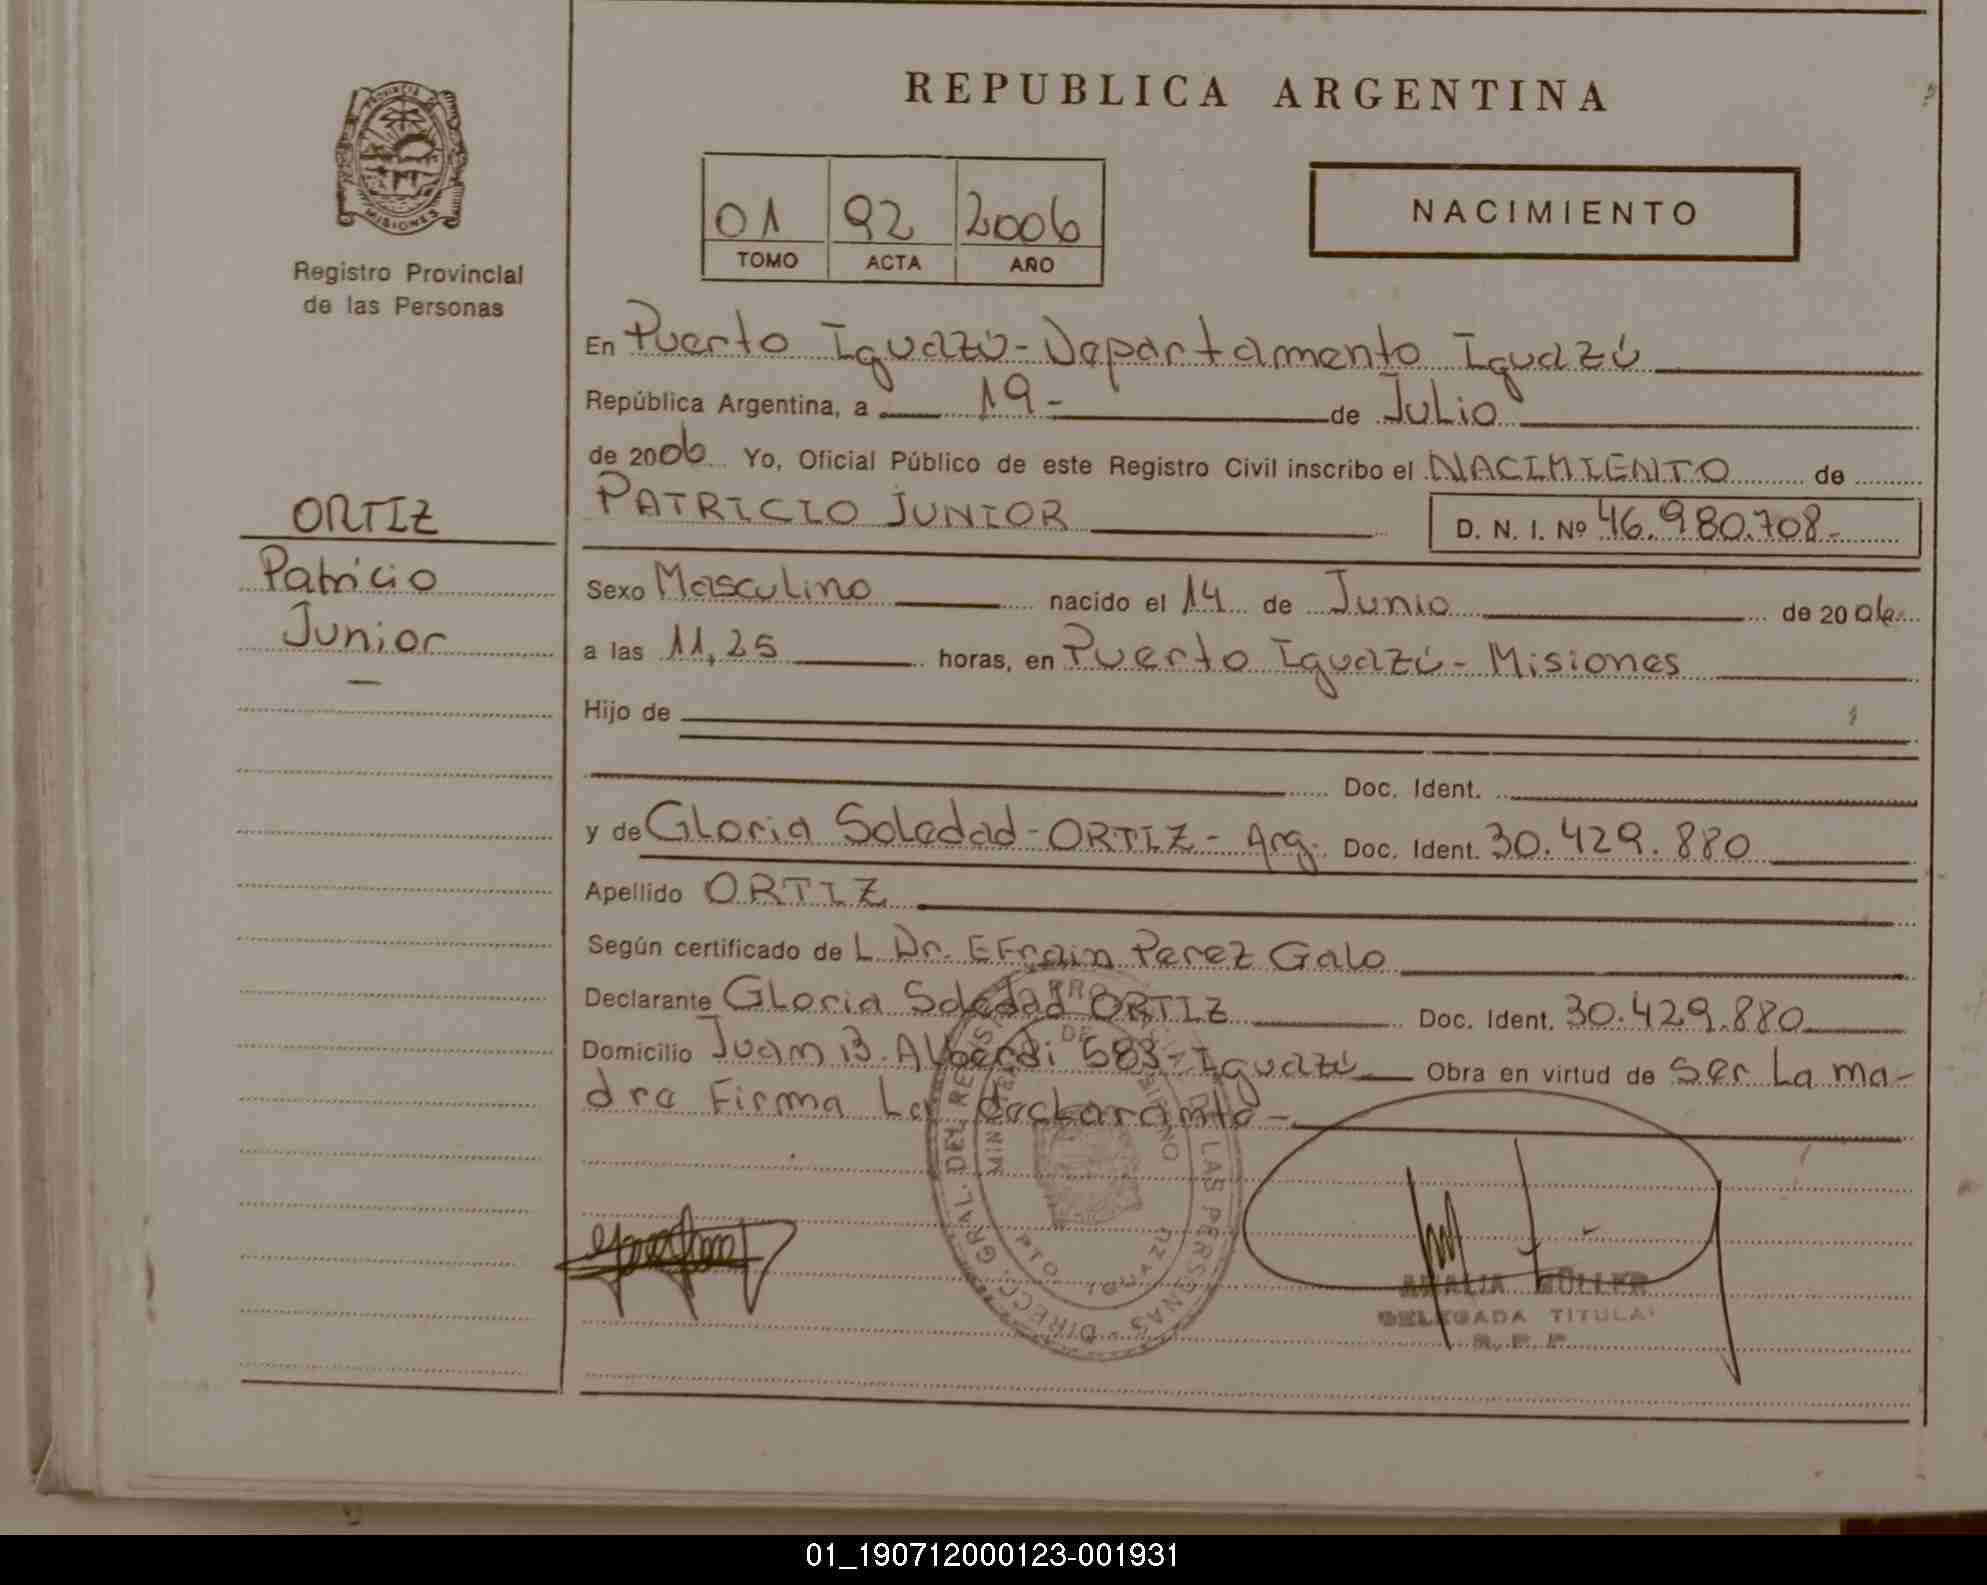 REPUBLICA ARGENTINA
PROVINCIA DE
MISIONES
Registro Provincial
de las Personas
01 92 2006
TOMO ACTA AÑO
NACIMIENTO
En Puerto Iguazú-Departamento Iguazú
República Argentina, a 19- de Julio
de 2006 Yo, Oficial Público de este Registro Civil inscribo el NACIMIENTO de
PATRICIO JUNIOR D. N. I. Nº 46.980.708-
ORTIZ
Patricio
Junior
Sexo Masculino nacido el 14 de Junio de 2006
a las 11,25 horas, en Puerto Iguazú-Misiones
Hijo de
Doc. Ident.
y de Gloria Soledad-ORTIZ-Arg. Doc. Ident. 30.429.880
Apellido ORTIZ
Según certificado de L Dr. EFrain Perez Galo
Declarante Gloria Soledad ORTIZ Doc. Ident. 30.429.880
Domicilio Juan B. Alberdi 583-Iguazú Obra en virtud de Ser La ma-
dre Firma La declarante-
DIRECC. GRAL. DEL REGISTRO DE LAS PERSONAS
PTO. IGUAZU
AMALIA MÜLLER
DELEGADA TITULAR
R. P. P.
01_190712000123-001931